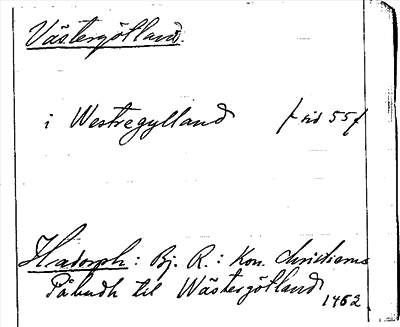 Västergötland.
i Westregylland / sid 55 /
Hadorph: Bj. R.: Kon. Christierns
Påbudh til Wästergötland
1462.